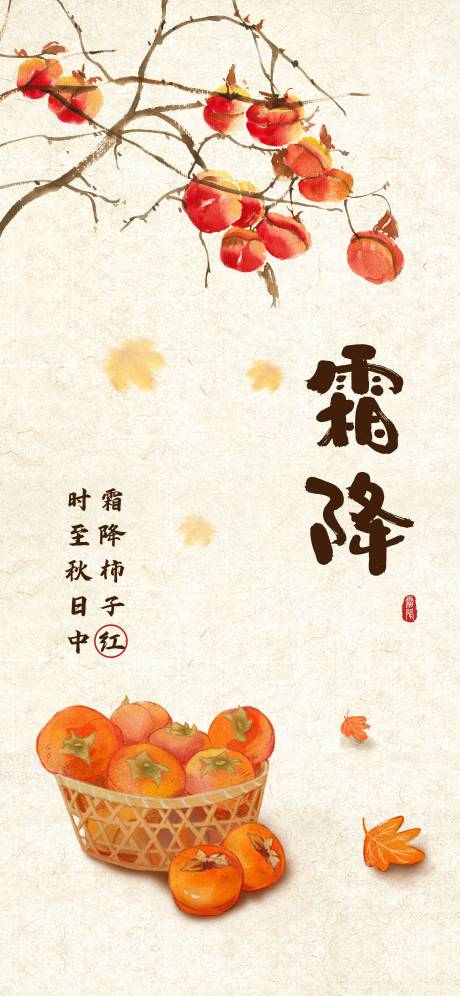 霜降
霜降柿子红
时至秋日中
霜降